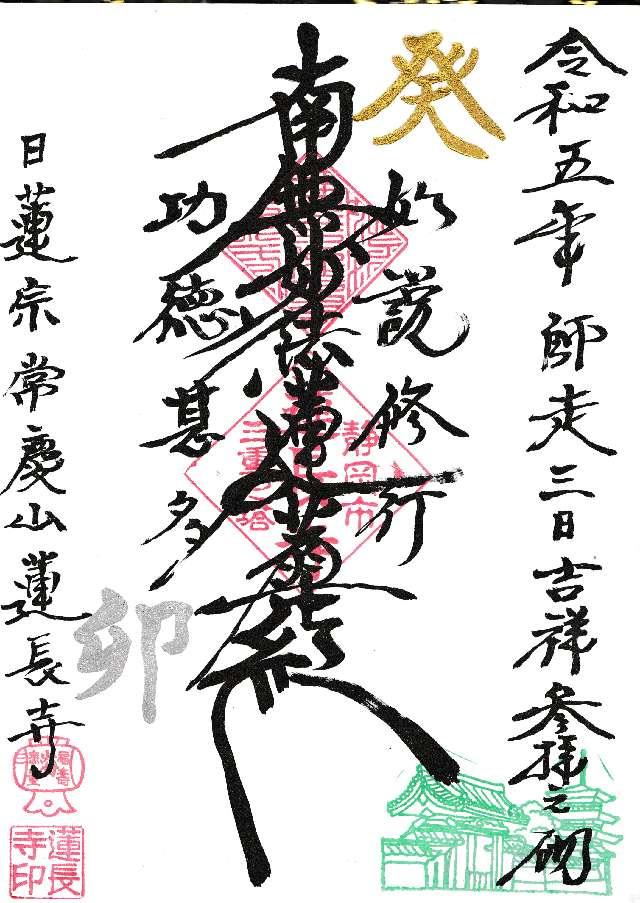 令和五年 師走三日吉祥参拝之砌
癸
如説修行
南無妙法蓮華経
功徳甚多
卯
日蓮宗常慶山蓮長寺
静岡市
三重之塔
蓮長
寺印